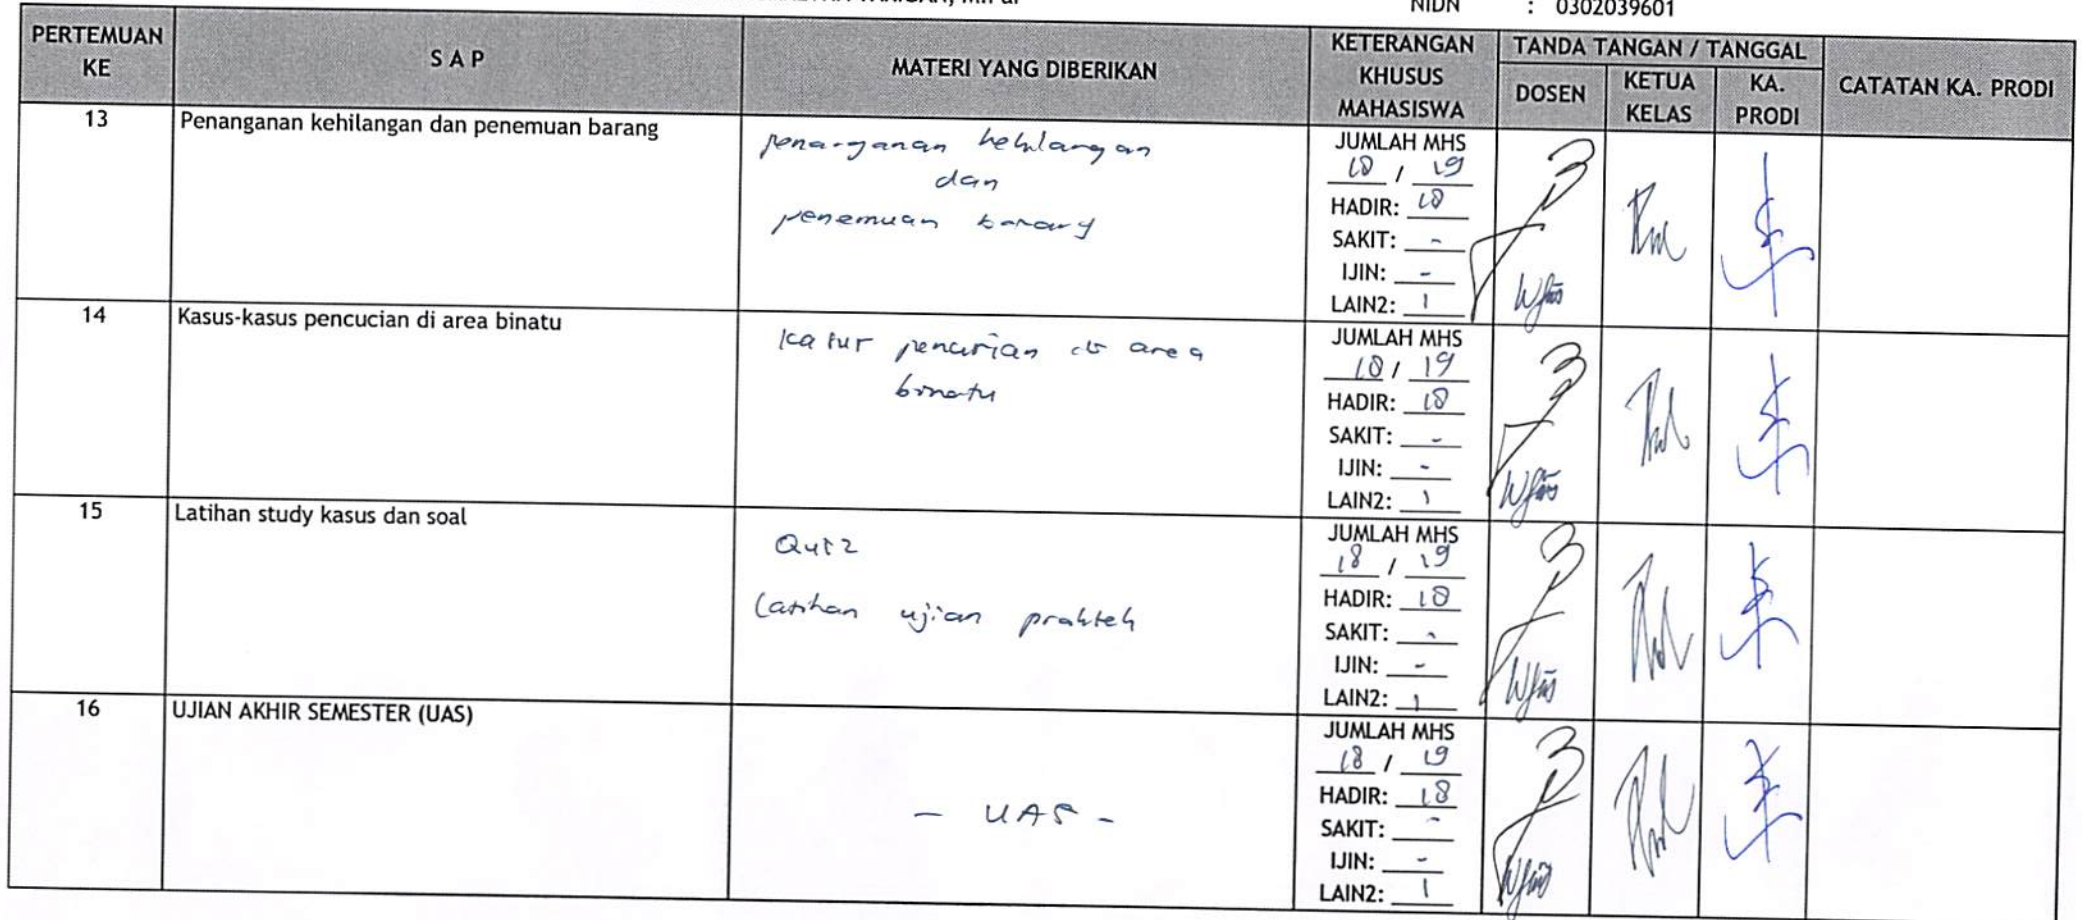 NIDN : 0302039601
PERTEMUAN KE
S A P
MATERI YANG DIBERIKAN
KETERANGAN KHUSUS MAHASISWA
TANDA TANGAN / TANGGAL
DOSEN
KETUA KELAS
KA. PRODI
CATATAN KA. PRODI
13
Penanganan kehilangan dan penemuan barang
penanganan kehilangan
dan
penemuan barang
JUMLAH MHS
18 / 19
HADIR: 18
SAKIT: -
IJIN: -
LAIN2: 1
14
Kasus-kasus pencucian di area binatu
kasus pencurian di area
binatu
JUMLAH MHS
18 / 19
HADIR: 18
SAKIT: -
IJIN: -
LAIN2: 1
15
Latihan study kasus dan soal
Quiz
Latihan ujian praktek
JUMLAH MHS
18 / 19
HADIR: 18
SAKIT: -
IJIN: -
LAIN2: 1
16
UJIAN AKHIR SEMESTER (UAS)
- UAS -
JUMLAH MHS
18 / 19
HADIR: 18
SAKIT: -
IJIN: -
LAIN2: 1